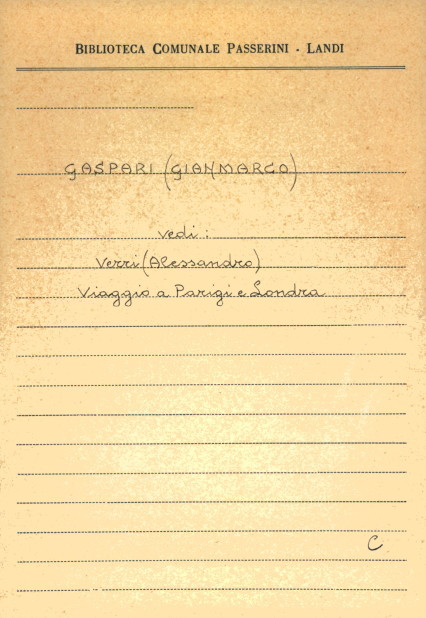 BIBLIOTECA COMUNALE PASSERINI - LANDI
GASPARI (GIANMARCO)
vedi:
Verri (Alessandro)
Viaggio a Parigi e Londra
C